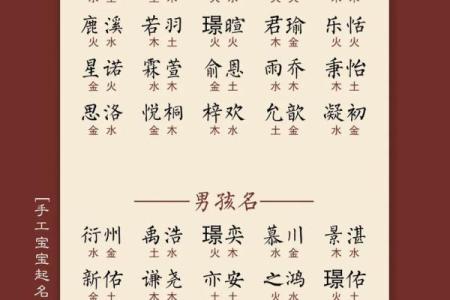 鹿溪 若羽 璟暄 君瑜 乐恬
火水 木土 火火 木金 火火
星诺 霖萱 俞恩 雨乔 秉怡
金火 水木 金土 水木 木土
思洛 悦桐 梓欢 允歆 凝初
金水 金木 木水 土金 水金
男孩名
衍州 禹浩 璟奕 慕川 景湛
水金 土水 木木 水金 木水
新佑 谦尧 亦安 之鸿 璟佑
金土 木木 土土 火水 火土
[手工宝宝起名